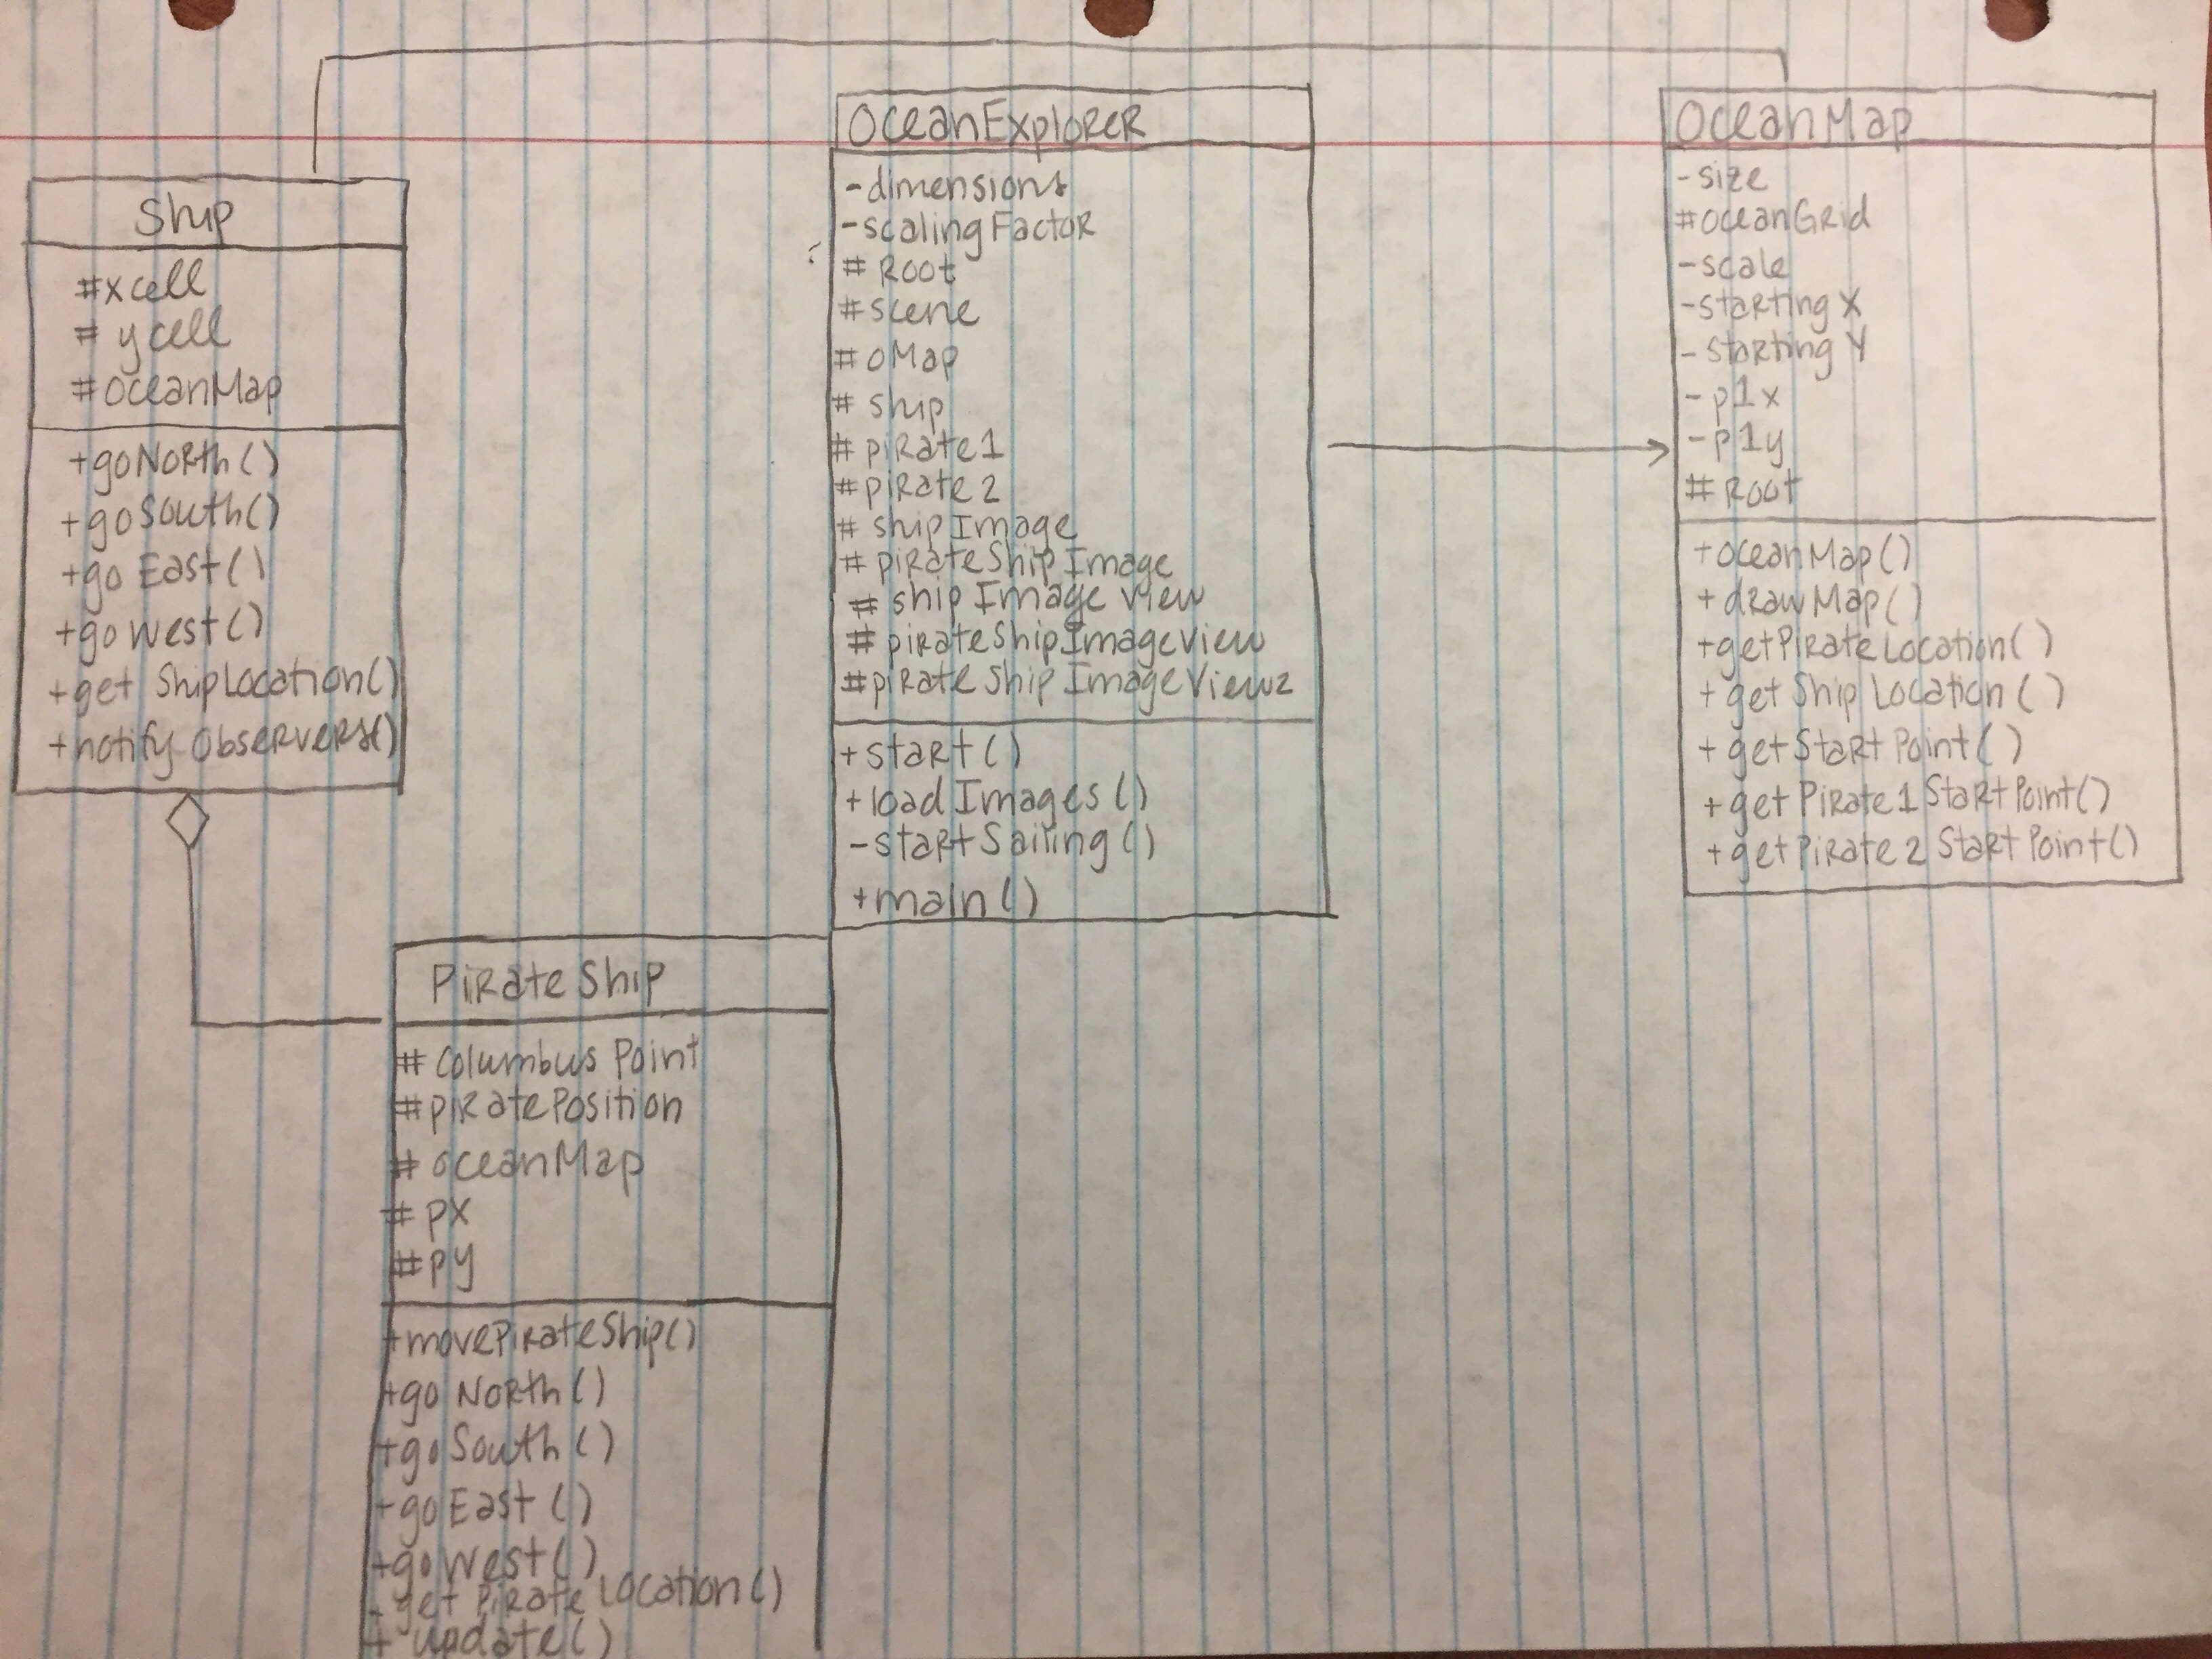 Ship
#xcell
#ycell
#oceanMap
+goNorth()
+goSouth()
+goEast()
+goWest()
+get ShipLocation()
+notify Observers()
Pirate Ship
#Columbus Point
#piratePosition
#oceanMap
#px
#py
+movePirateShip()
+go North()
+go South()
+go East()
+go West()
+get Pirate Location()
+update()
OceanExplorer
-dimensions
-scalingFactor
#root
#scene
#oMap
#ship
#pirate1
#pirate2
#shipImage
#pirateShipImage
#ship Image View
#pirateShipImageView
#pirateShip ImageView2
+start()
+load Images()
-start Sailing()
+main()
OceanMap
-size
#oceanGrid
-scale
-starting X
-starting Y
-p1x
-p1y
#root
+oceanMap()
+drawMap()
+getPirateLocation()
+get Ship Location()
+get Start Point()
+get Pirate1 Start Point()
+get Pirate 2 Start Point()